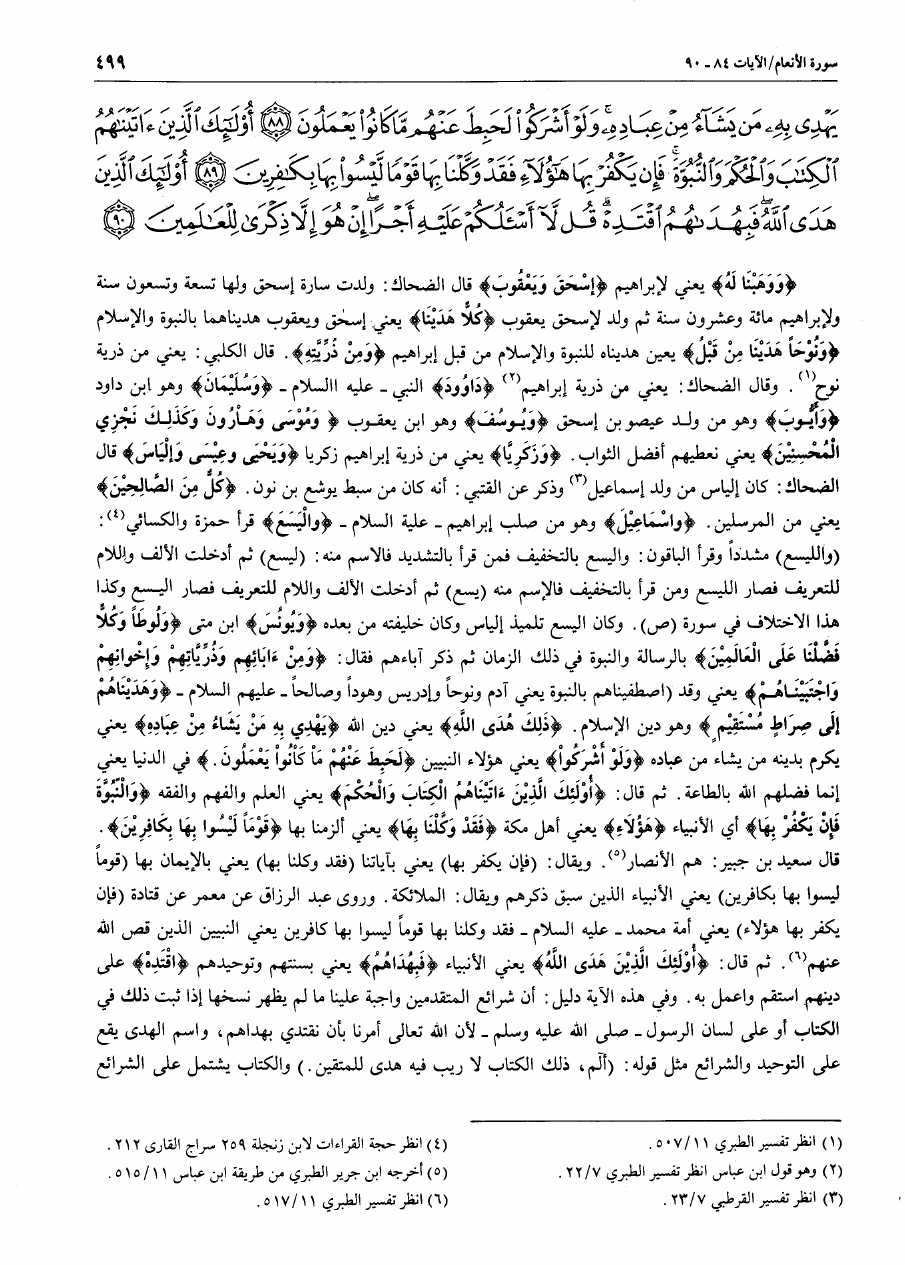 سورة الأنعام/الآيات ٨٤ ـ ٩٠
٤٩٩
يَهْدِى بِهِۦ مَن يَشَآءُ مِنْ عِبَادِهِۦ ۚ وَلَوْ أَشْرَكُواْ لَحَبِطَ عَنْهُم مَّا كَانُواْ يَعْمَلُونَ ﴿٨٨﴾ أُوْلَٰٓئِكَ ٱلَّذِينَ ءَاتَيْنَٰهُمُ
ٱلْكِتَٰبَ وَٱلْحُكْمَ وَٱلنُّبُوَّةَ ۚ فَإِن يَكْفُرْ بِهَا هَٰٓؤُلَآءِ فَقَدْ وَكَّلْنَا بِهَا قَوْمًا لَّيْسُواْ بِهَا بِكَٰفِرِينَ ﴿٨٩﴾ أُوْلَٰٓئِكَ ٱلَّذِينَ
هَدَى ٱللَّهُ ۖ فَبِهُدَىٰهُمُ ٱقْتَدِهْ ۗ قُل لَّآ أَسْـَٔلُكُمْ عَلَيْهِ أَجْرًا ۖ إِنْ هُوَ إِلَّا ذِكْرَىٰ لِلْعَٰلَمِينَ ﴿٩٠﴾
﴿وَوَهَبْنَا لَهُ﴾ يعني لإبراهيم ﴿إِسْحَقَ وَيَعْقُوبَ﴾ قال الضحاك: ولدت سارة إسحق ولها تسعة وتسعون سنة
ولإبراهيم مائة وعشرون سنة ثم ولد لإسحق يعقوب ﴿كُلًّا هَدَيْنَا﴾ يعني إسحق ويعقوب هديناهما بالنبوة والإسلام
﴿وَنُوْحَاً هَدَيْنَا مِنْ قَبْلُ﴾ يعين هديناه للنبوة والإسلام من قبل إبراهيم ﴿وَمِنْ ذُرِّيَّتِهِ﴾. قال الكلبي: يعني من ذرية
نوح(١). وقال الضحاك: يعني من ذرية إبراهيم(٢) ﴿دَاوُودَ﴾ النبي ـ عليه االسلام ـ ﴿وَسُلَيْمَانَ﴾ وهو ابن داود
﴿وَأَيُّوبَ﴾ وهو من ولد عيصو بن إسحق ﴿وَيُوسُفَ﴾ وهو ابن يعقوب ﴿ وَمُوْسَى وَهَارُونَ وَكَذَلِكَ نَجْزِي
الْمُحْسِنِيْنَ﴾ يعني نعطيهم أفضل الثواب. ﴿وَزَكَرِيَّا﴾ يعني من ذرية إبراهيم زكريا ﴿وَيَحْيَى وعِيْسَى وَإِلْيَاسَ﴾ قال
الضحاك: كان إلياس من ولد إسماعيل(٣) وذكر عن القتبي: أنه كان من سبط يوشع بن نون. ﴿كُلٌّ مِنَ الصَّالِحِيْنَ﴾
يعني من المرسلين. ﴿وإسْمَاعِيْلَ﴾ وهو من صلب إبراهيم ـ علية السلام ـ ﴿والْيَسَعَ﴾ قرأ حمزة والكسائي(٤):
(والليسع) مشدداً وقرأ الباقون: واليسع بالتخفيف فمن قرأ بالتشديد فالاسم منه: (ليسع) ثم أدخلت الألف واللام
للتعريف فصار الليسع ومن قرأ بالتخفيف فالإسم منه (يسع) ثم أدخلت الألف واللام للتعريف فصار اليسع وكذا
هذا الاختلاف في سورة (ص). وكان اليسع تلميذ إلياس وكان خليفته من بعده ﴿وَيُونُسَ﴾ ابن متى ﴿وَلُوطَاً وَكُلًّا
فَضَّلْنَا عَلَى الْعَالَمِيْنَ﴾ بالرسالة والنبوة في ذلك الزمان ثم ذكر آباءهم فقال: ﴿وَمِنْ ءَابَائِهِم وَذُرِّيَّاتِهِمْ وَإِخْوانِهِمْ
وَاجْتَبَيْنَـاهُـمْ﴾ يعني وقد (اصطفيناهم بالنبوة يعني آدم ونوحاً وإدريس وهوداً وصالحاً ـ عليهم السلام ـ ﴿وَهَدَيْنَاهُمْ
إلَى صِرَاطٍ مُسْتَقِيْمٍ ﴾ وهو دين الإسلام. ﴿ذَلِكَ هُدَى اللَّهِ﴾ يعني دين الله ﴿يَهْدِي بِهِ مَنْ يَشَاءُ مِنْ عِبَادِهِ﴾ يعني
يكرم بدينه من يشاء من عباده ﴿وَلَوْ أَشْرَكُواْ﴾ يعني هؤلاء النبيين ﴿لَحَبِطَ عَنْهُمْ مَا كَانُواْ يَعْمَلُونَ.﴾ في الدنيا يعني
إنما فضلهم الله بالطاعة. ثم قال: ﴿أُوْلَئِكَ الَّذِيْنَ ءَاتَيْنَاهُمُ الْكِتَابَ وَالْحُكْمَ﴾ يعني العلم والفهم والفقه ﴿وَالنُّبُوَّةَ
فَإِنْ يَكْفُرْ بِهَا﴾ أي الأنبياء ﴿هَؤُلَاءِ﴾ يعني أهل مكة ﴿فَقَدْ وَكَّلْنَا بِهَا﴾ يعني ألزمنا بها ﴿قَوْمَاً لَيْسُوا بِهَا بِكَافِرِيْنَ﴾.
قال سعيد بن جبير: هم الأنصار(٥). ويقال: (فإن يكفر بها) يعني بآياتنا (فقد وكلنا بها) يعني بالإيمان بها (قوماً
ليسوا بها بكافرين) يعني الأنبياء الذين سبق ذكرهم ويقال: الملائكة. وروى عبد الرزاق عن معمر عن قتادة (فإن
يكفر بها هؤلاء) يعني أمة محمد ـ عليه السلام ـ فقد وكلنا بها قوماً ليسوا بها كافرين يعني النبيين الذين قص الله
عنهم(٦). ثم قال: ﴿أُوْلَئِكَ الَّذِيْنَ هَدَى اللَّهُ﴾ يعني الأنبياء ﴿فَبِهُدَاهُمُ﴾ يعني بسنتهم وتوحيدهم ﴿اقْتَدِهْ﴾ على
دينهم استقم واعمل به. وفي هذه الآية دليل: أن شرائع المتقدمين واجبة علينا ما لم يظهر نسخها إذا ثبت ذلك في
الكتاب أو على لسان الرسول ـ صلى الله عليه وسلم ـ لأن الله تعالى أمرنا بأن نقتدي بهداهم، واسم الهدى يقع
على التوحيد والشرائع مثل قوله: (ألَم، ذلك الكتاب لا ريب فيه هدى للمتقين.) والكتاب يشتمل على الشرائع
(١) انظر تفسير الطبري ٥٠٧/١١.
(٢) وهو قول ابن عباس انظر تفسير الطبري ٢٢/٧.
(٣) انظر تفسير القرطبي ٢٣/٧.
(٤) انظر حجة القراءات لابن زنجلة ٢٥٩ سراج القارى ٢١٢.
(٥) أخرجه ابن جرير الطبري من طريقة ابن عباس ٥١٥/١١.
(٦) انظر تفسير الطبري ٥١٧/١١.